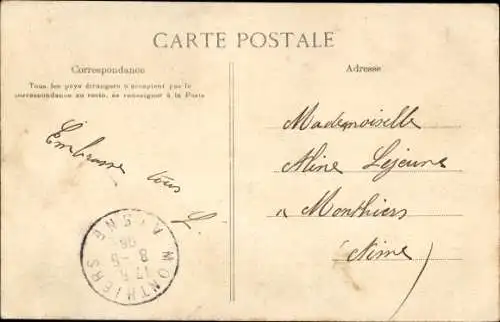 CARTE POSTALE
Correspondance
Tous les pays étrangers n'acceptent pas la
correspondance au recto, se renseigner à la Poste
Adresse
Embrasse tous
L.
Mademoiselle
Aline Lejeune
à Monthiers
(Aisne)
MONTHIERS
AISNE
8 - 5